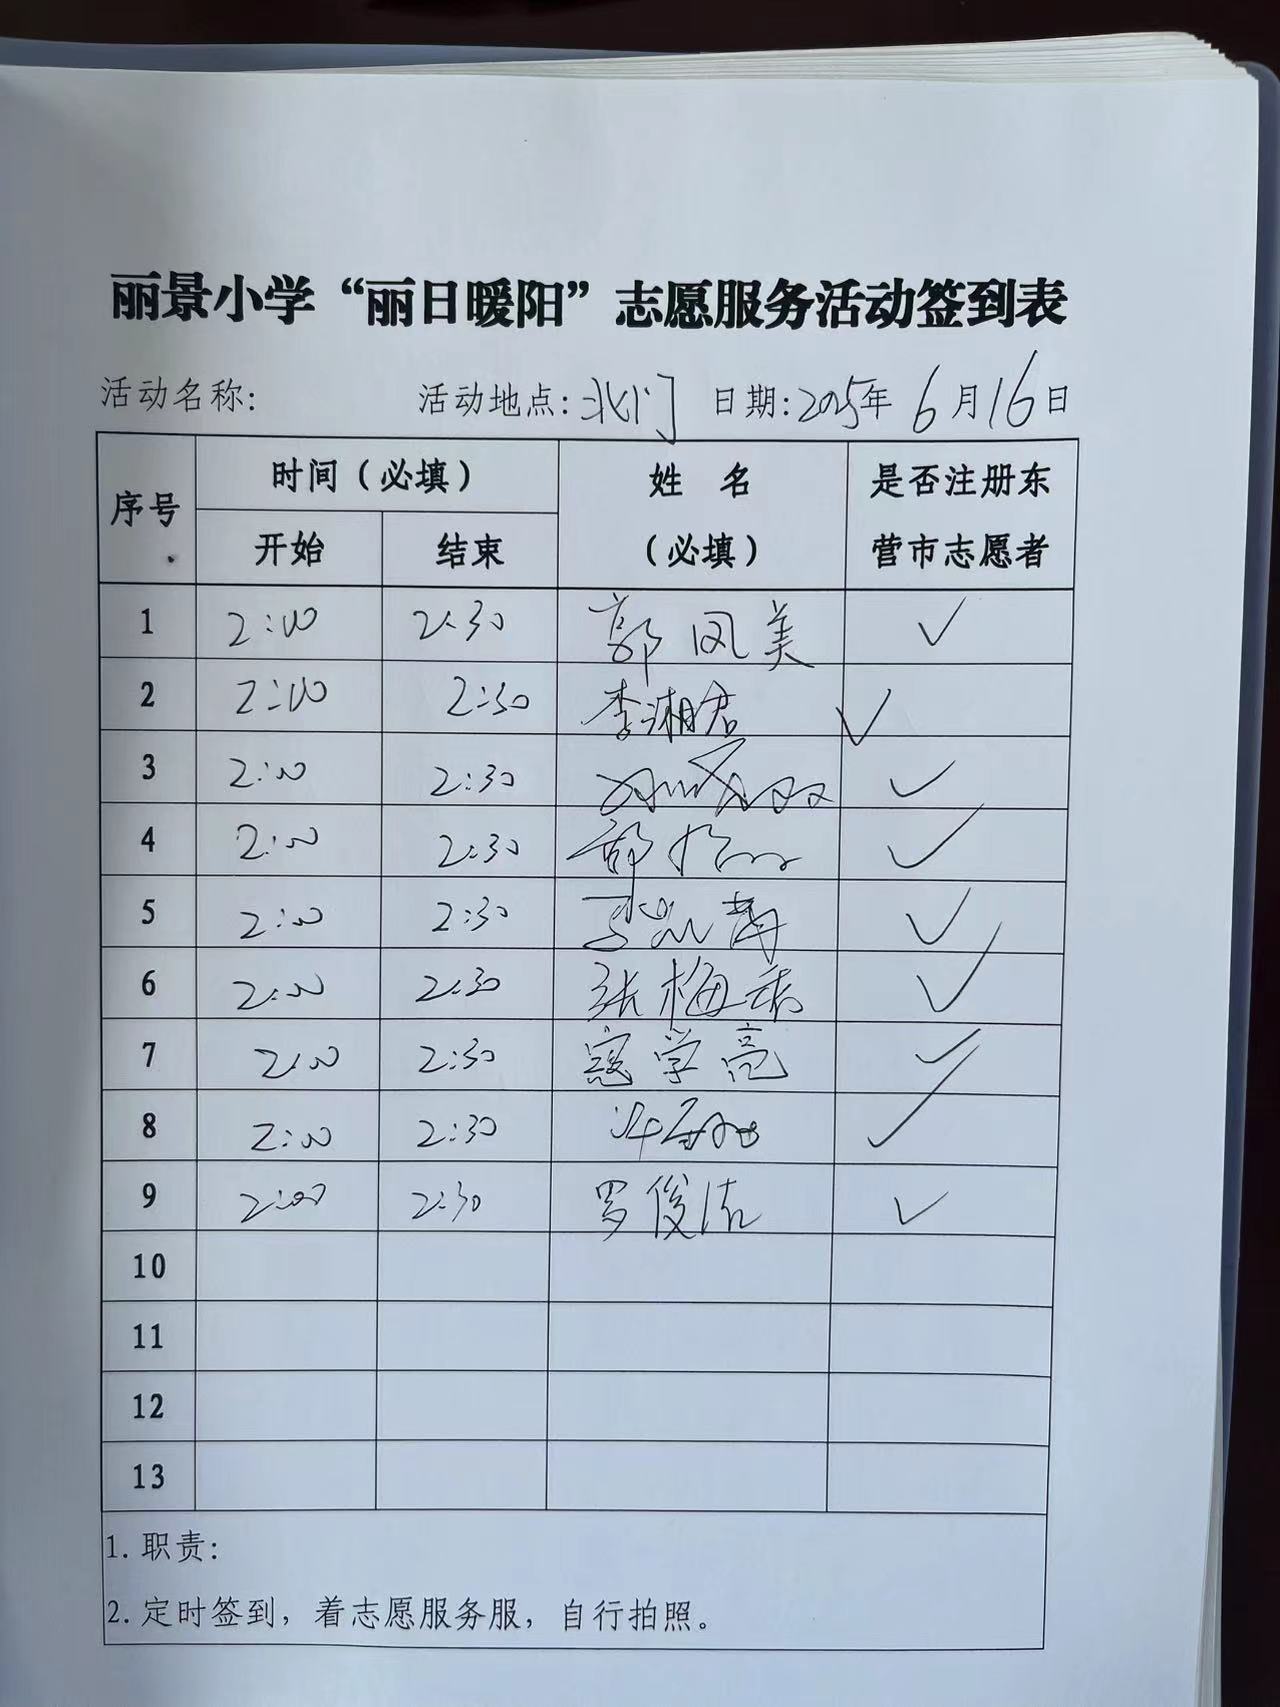 丽景小学“丽日暖阳”志愿服务活动签到表
活动名称: 活动地点:北门 日期:2025年 6月16日
序号 时间（必填） 姓 名（必填） 是否注册东营市志愿者
开始 结束
1 2:00 2:30 郭凤美 ✓
2 2:00 2:30 李湘君 ✓
3 2:00 2:30 ✓
4 2:00 2:30 ✓
5 2:00 2:30 ✓
6 2:00 2:30 张梅 ✓
7 2:00 2:30 学亮 ✓
8 2:00 2:30 ✓
9 2:00 2:30 罗俊洁 ✓
10
11
12
13
1. 职责:
2. 定时签到，着志愿服务服，自行拍照。